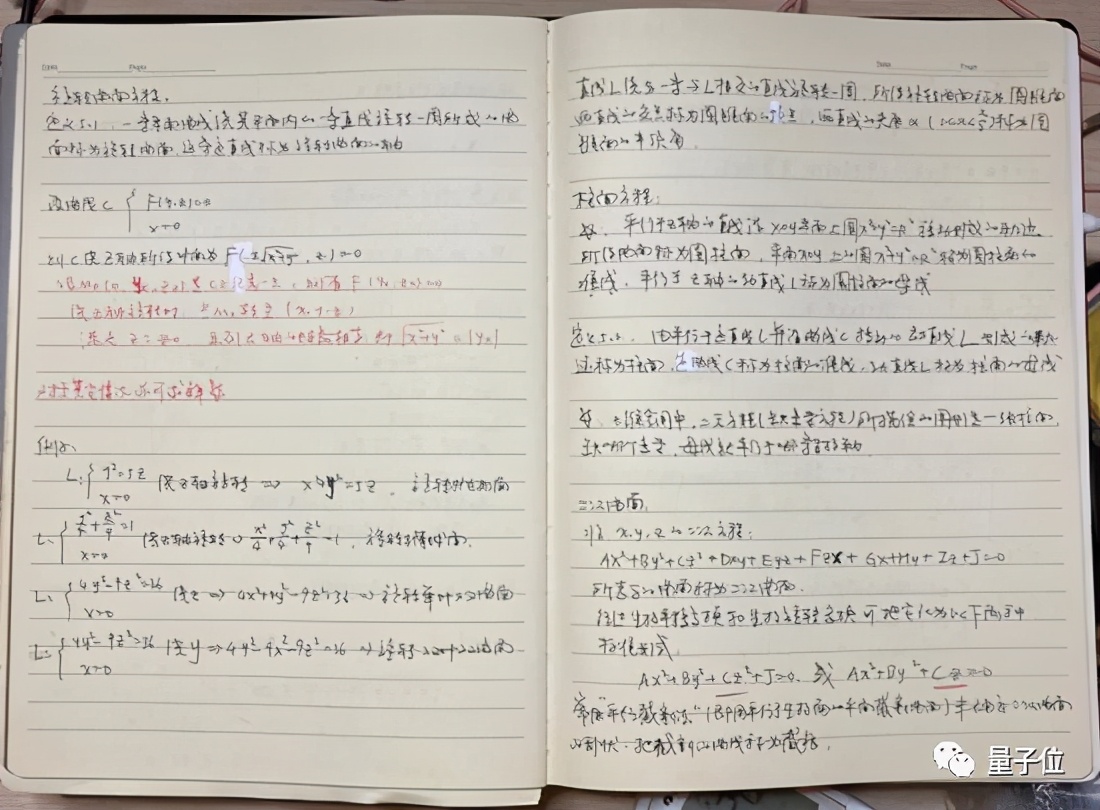 Date Page
旋转曲面方程.
定义5.1, 一条平面曲线绕其平面内的一条直线旋转一周所成的曲
面称为旋转曲面.这条定直线称为旋转曲面的轴
设曲线C { F(y,z)=0
x=0
则C绕Z轴所得曲面为 F(±√x²+y², z)=0
对于其它情况亦可求解
例如.
L:{ y²=5z
x=0 绕Z轴旋转 ⇒ x²+y²=5z , 旋转抛物面
L:{ y²/4+z²/9=1
x=0 绕Z轴旋转 ⇒ x²/4+y²/4+z²/9=1, 旋转椭球面.
L:{ 4y²-9z²=36
x=0 绕z ⇒ 4x²+4y²-9z²=36 ⇒ 旋转单叶双曲面
L:{ 4y²-9z²=36
x=0 绕y ⇒ 4y²-4x²-9z²=36 ⇒ 旋转双叶双曲面
Date Page
直线L绕另一条与L相交的直线旋转一周, 所得旋转曲面称为圆锥面
两直线的交点称为圆锥面的顶点, 两直线的夹角α(0<α<π/2)称为圆
锥面的半顶角
柱面方程:
平行于z轴的直线沿xoy平面上圆x²+y²=R²移动
所得曲面称为圆柱面, 平面xoy上的圆x²+y²=R²称为圆柱面的
准线, 平行于z轴的动直线L称为圆柱面的母线
定义5.2. 由平行于定直线L并沿曲线C移动的动直线L形成的
称为柱面, 曲线C称为柱面的准线, 动直线L称为柱面的母线
在空间中, 二元方程 所描绘的图形是一张柱面,
母线就平行于哪条坐标轴
二次曲面.
x,y,z的二次方程:
Ax²+By²+Cz²+Dxy+Eyz+Fzx+Gx+Hy+Iz+J=0
所表示的曲面称为二次曲面.
经过坐标平移变换和坐标旋转变换可把它化为以下两种
标准形式
Ax²+By²+Cz²+J=0. 或 Ax²+By²+Cz=0
常用"平行截割法"(即用平行于坐标面的平面截割曲面)来确定二次曲面
的形状.把截割的曲线称为截痕.
量子位